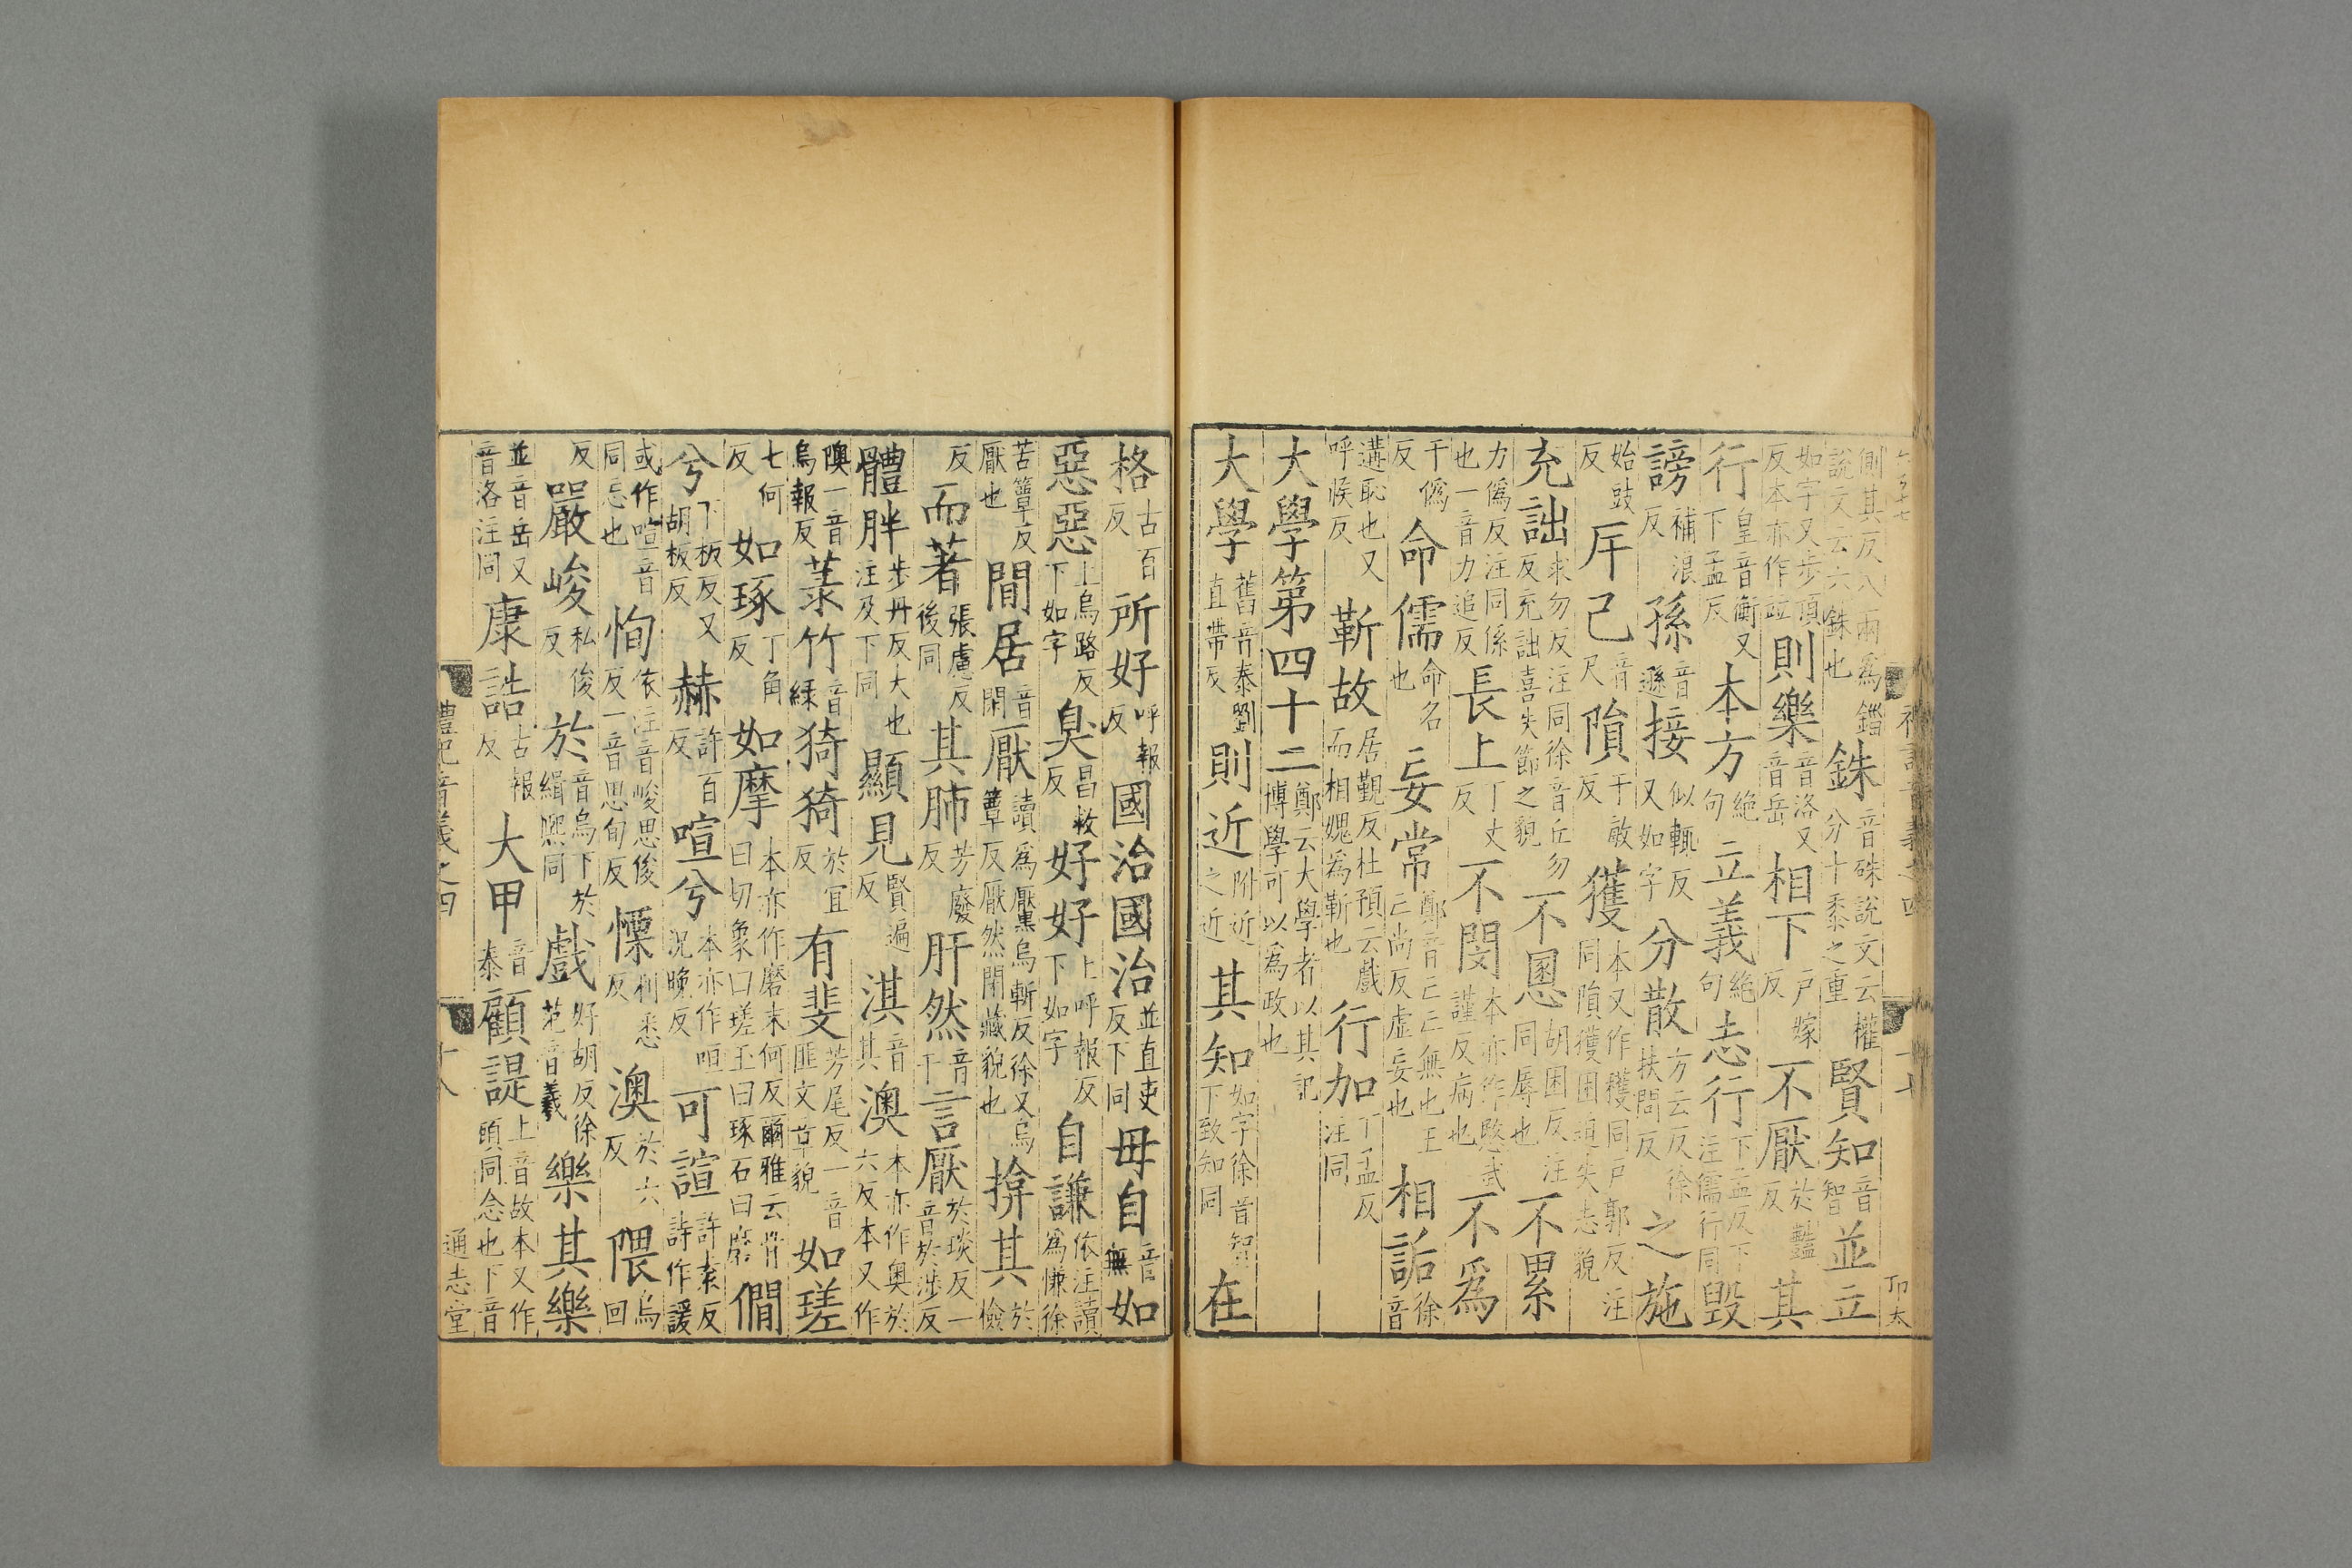 側其反八兩爲錙說文云六銖也銖音硃說文云權分十黍之重賢知音智並立
如字又步頂反本亦作竝則樂音洛又音岳相下戶嫁反不厭於豔反其
行皇音衡又下孟反本方絶句立義絶句志行下孟反下注儒行同毀
謗補浪反孫音遜接似輒反又如字分散方云反徐扶問反之施
始豉反斥己音尺隕于敏反獲本又作穫同戶郭反注同隕獲困迫失志貌
充詘求勿反注同徐音丘勿反充詘喜失節之貌不慁胡困反注同辱也不累
力僞反注同係也一音力追反長上丁丈反不閔本亦作愍武謹反病也不爲
于僞反命儒命名也妄常鄭音亡亡無也王亡尚反虚妄也相詬徐音
遘恥也又呼候反靳故居覲反杜預云戲而相媿爲靳也行加丁孟反注同
大學第四十二鄭云大學者以其記博學可以為政也
大學舊音泰劉直帶反則近附近之近其知如字徐音智下致知同在
格古百反所好呼報反國治國治並直吏反下同毋自音無如
惡惡上烏路反下如字臭昌救反好好上呼報反下如字自謙依注讀為慊徐
苦簟反厭也閒居音閑厭讀爲黶烏斬反徐又烏簟反厭然閉藏貌也揜其於檢
反而著張慮反後同其肺芳廢反肝然音干言厭於琰反一音於涉反
體胖步丹反大也注及下同顯見賢遍反淇音其澳本亦作奧於六反本又作
隩一音烏報反菉竹音綠猗猗於宜反有斐芳尾反一音匪文章貌如瑳
七何反如琢丁角反如摩本亦作磨末何反爾雅云骨曰切象曰瑳玉曰琢石曰磨僩
兮下板反又胡板反赫許百反喧兮本亦作咺況晚反可諠許袁反詩作諼
或作喧音同忘也恂依注音峻思俊反一音思旬反慄利悉反澳於六反隈烏回
反嚴峻私俊反於音烏下於緝熙同戲好胡反徐范音羲樂其樂
並音岳又音洛注同康誥古報反大甲音泰顧諟上音故本又作頭同念也下音
禮記音義之四
十八
通志堂